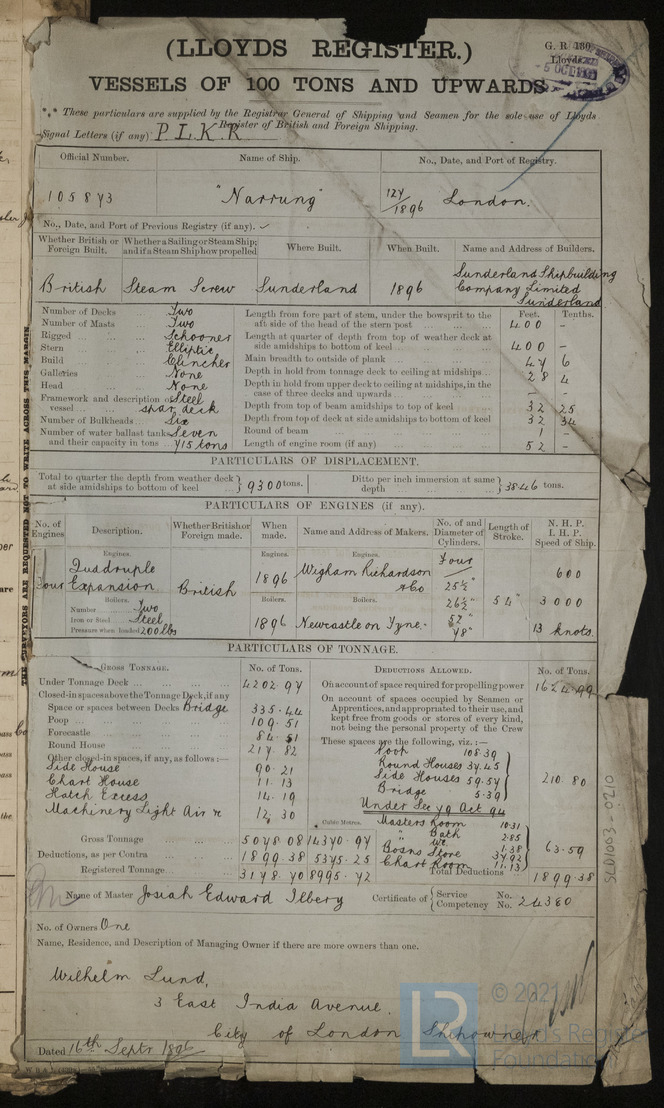 (LLOYDS REGISTER.)
G. R 180.
Lloyds
5 OCT
VESSELS OF 100 TONS AND UPWARDS
*** These particulars are supplied by the Registrar General of Shipping and Seamen for the sole use of Lloyds
Register of British and Foreign Shipping.
Signal Letters (if any) P L K R
Official Number. Name of Ship. No., Date, and Port of Registry.
105873 "Narrung" 127/1896 London.
No., Date, and Port of Previous Registry (if any).
Whether British or Foreign Built. Whether a Sailing or Steam Ship; and if a Steam Ship how propelled Where Built. When Built. Name and Address of Builders.
British Steam Screw Sunderland 1896 Sunderland Shipbuilding Company Limited Sunderland
Number of Decks Two
Number of Masts Two
Rigged Schooner
Stern Elliptic
Build Clincher
Galleries None
Head None
Framework and description of vessel Steel spar deck
Number of Bulkheads Six
Number of water ballast tanks Seven
and their capacity in tons 715 tons
Feet. Tenths.
Length from fore part of stem, under the bowsprit to the aft side of the head of the stern post 400 –
Length at quarter of depth from top of weather deck at side amidships to bottom of keel 400 –
Main breadth to outside of plank 47 6
Depth in hold from tonnage deck to ceiling at midships 28 4
Depth in hold from upper deck to ceiling at midships, in the case of three decks and upwards – –
Depth from top of beam amidships to top of keel 32 25
Depth from top of deck at side amidships to bottom of keel 32 34
Round of beam 1 –
Length of engine room (if any) 52 –
PARTICULARS OF DISPLACEMENT.
Total to quarter the depth from weather deck at side amidships to bottom of keel 9300 tons. Ditto per inch immersion at same depth 38.46 tons.
PARTICULARS OF ENGINES (if any).
No. of Engines Description. Whether British or Foreign made. When made. Name and Address of Makers. No. of and Diameter of Cylinders. Length of Stroke. N. H. P. I. H. P. Speed of Ship.
Engines. Engines. Engines.
Four Quadruple Expansion British 1896 Wigham Richardson & Co Four 25½" 26½" 52" 78" 54" 600 3000 13 knots
Boilers. Boilers. Boilers.
Number Two
Iron or Steel Steel 1896 Newcastle on Tyne.
Pressure when loaded 200 lbs
PARTICULARS OF TONNAGE.
GROSS TONNAGE. No. of Tons. DEDUCTIONS ALLOWED. No. of Tons.
Under Tonnage Deck 4202.97
Closed-in spaces above the Tonnage Deck, if any
Space or spaces between Decks Bridge 335.44
Poop 109.51
Forecastle 84.51
Round House 217.82
Other closed-in spaces, if any, as follows :—
Side House 90.21
Chart House 11.13
Hatch Excess 14.19
Machinery Light Air &c 12.30
Cubic Metres.
Gross Tonnage 5078.08 14370.97
Deductions, as per Contra 1899.38 5375.25
Registered Tonnage 3178.70 8995.72
On account of space required for propelling power 1624.99
On account of spaces occupied by Seamen or Apprentices, and appropriated to their use, and kept free from goods or stores of every kind, not being the personal property of the Crew
These spaces are the following, viz. :—
Poop 108.39
Round Houses 37.45
Side Houses 59.57
Bridge 5.39
210.80
Under Sec 79 Act 94
Masters Room 10.31
" Bath 2.85
" WC 1.38
Bosns Store 37.92
Chart Room 11.13
63.59
Total Deductions 1899.38
Name of Master Josiah Edward Ilbery Certificate of Service No. Competency No. 24380
No. of Owners One
Name, Residence, and Description of Managing Owner if there are more owners than one.
Wilhelm Lund,
3 East India Avenue,
City of London Shipowner
Dated 16th Septr 1896
THE SURVEYORS ARE REQUESTED NOT TO WRITE ACROSS THIS MARGIN.
SLD1003-0210
LR
© 2021
Lloyd's Register
Foundation